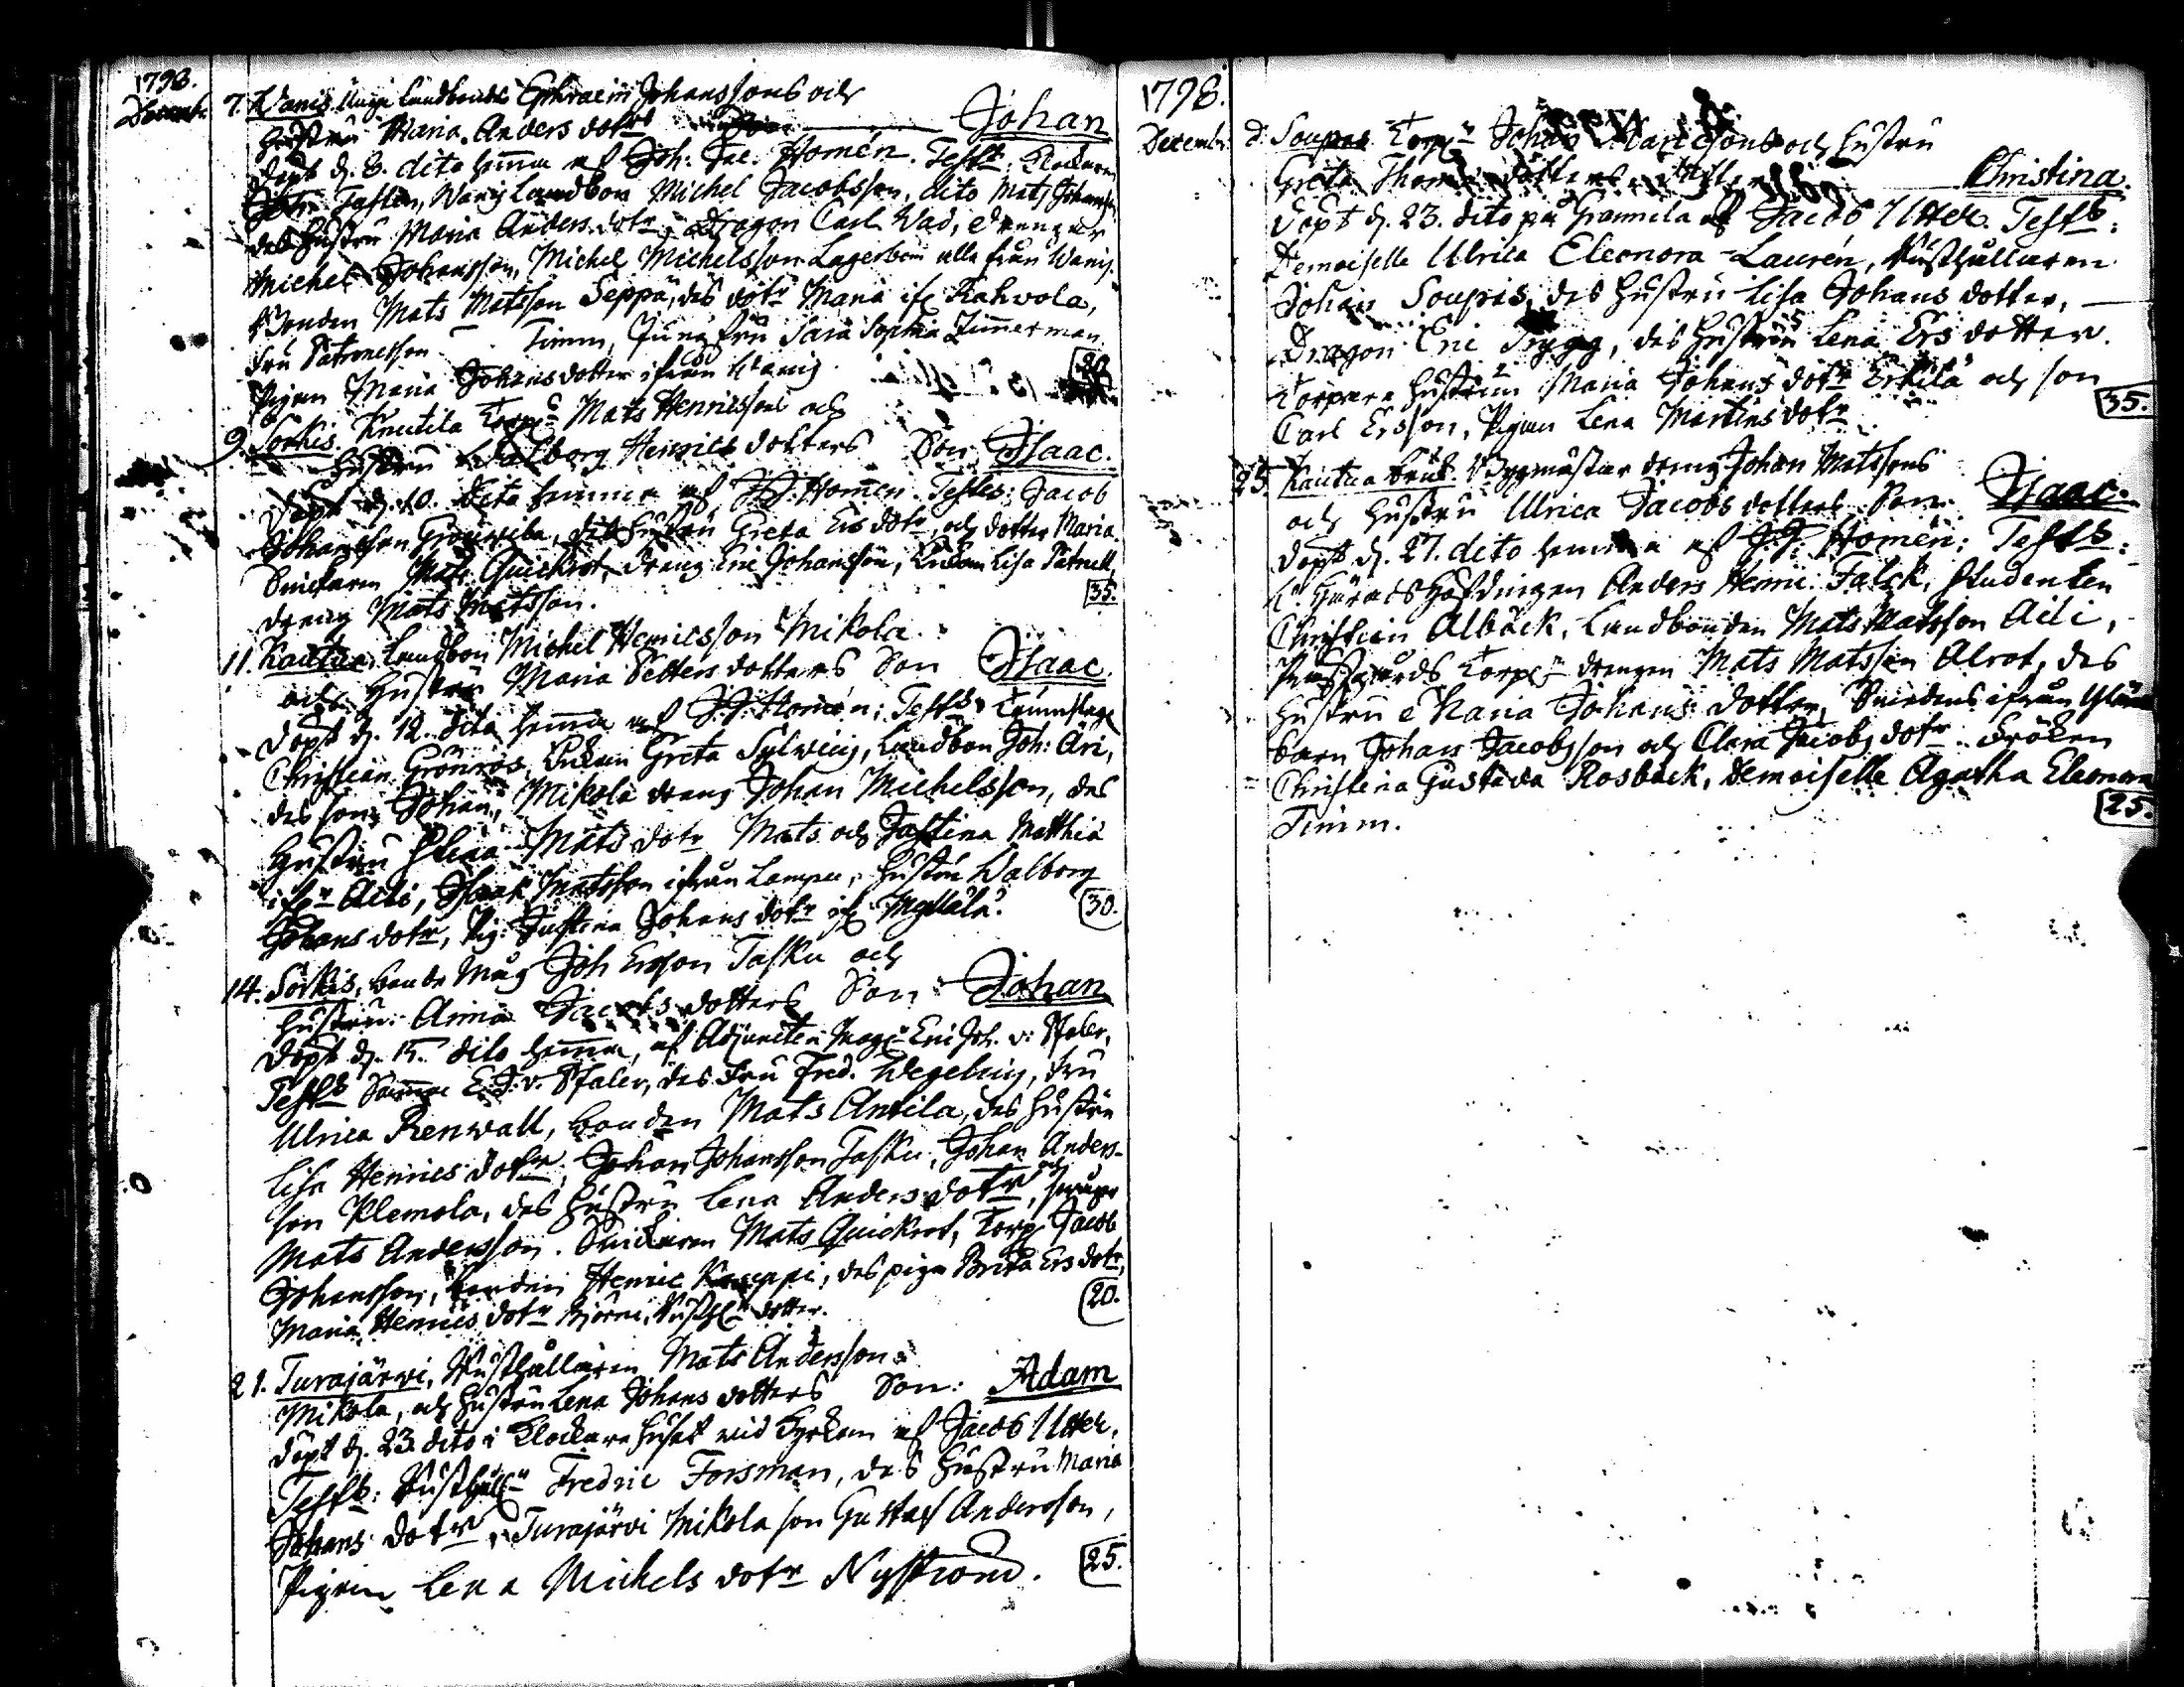 1798.
Decemb.
7. Wanis Unga Landbonds Ephraim Johanssons och
Hustru Maria Anders dotrs Johan
döpt d. 8. dito hemma af Joh: Jac. Homén. Testes: Klockaren
Taslen, Wanis Landbon Michel Jacobsson, dito Mats Johansson
des Hustru Maria Anders dotr, Dragon Carl Wad, drengar
Michel Johansson, Michel Michelsson Lagerbom alla från Wanis.
Bonden Mats Matsson Seppä, des dotr Maria ifr Kahvola,
Fru Petronelson Timm, Jungfru Sara Sophia Zimmerman
Pigan Maria Johansdotter ifrån Wanis.
9. Sorkis. Knutila Torp: Mats Henricssons och
Hustru Walborg Henrics dotters Son Isaac.
Döpt d. 10. dito hemma af J.J. Homén. Testes: Jacob
Johansson Grouwila, des Hustru Greta Ers dotr, och dotter Maria
Snickaren Mats Quickrot, dreng Eric Johansson, Enkan Lisa Patrull,
dreng Mats Matsson. 35.
11. Kautua, Landbon Michel Henricsson Mikola
och Hustru Maria Petters dotters Son Isaac
döpt d. 12. dito hemma af J.J. Homén; Testes
Christian Grönros, Enkan Greta Sylwing, Landbon Joh: Äri,
des son Johan, Mikola dreng Johan Michelsson, des
Hustru Stina Mats dotr Mats och Justina Matthia
ifrn Aili, Isaak Matsson ifrån Lampu, Hustru Walborg
Johans dotr, Pig: Justina Johans dotr ifr Myllälä. 30.
14. Sorkis, bonde Måg Joh Ersson Tasku och
Hustru Anna Jacobs dotters Son Johan
döpt d. 15. dito hemma, af Adjuncten Mag: Eric Joh. v: Pfaler,
Testes Samme E.J. v. Pfaler, des Fru Fred. Wegelius, Fru
Ulrica Renwall, bonden Mats Antila, des Hustru
Lisa Henrics dotr, Johan Johansson Tasku, Johan Anders-
son Klemola, des Hustru Lena Anders dotr,
Mats Andersson. Snickaren Mats Quickrot, Torp: Jacob
Johansson, bonden Henric Knaappi, des piga Brita Ers dotr,
Maria Henrics dotr Björni, Rusth: dotter. 20.
21. Turajärwi, Rusthållaren Mats Anderssons
Mikola, och Hustru Lena Johans dotters Son: Adam
döpt d. 23. dito i Klockare huset wid Kyrkan af Jacob Utter,
Testes: Rusthålln Fredric Forsman, des Hustru Maria
Johans dotr, Turajärvi Mikola son Gustaf Andersson,
Pigan Lena Michels dotr Nyström. 25.
1798.
December
d: Soupas Torp: Johan och Hustru
Greta Thomæ dotters Christina.
Döpt d. 23. dito på Gammila af Jacob Utter. Testes:
Demoiselle Ulrica Eleonora Laurén, Rusthållaren
Johan Soupas, des Hustru Lisa Johans dotter,
Dragon Eric Trygg, des Hustru Lena Ers dotter.
Torpare Hustrun Maria Johans dotr Erkilä och son
Carl Ersson, Pigan Lena Martins dotr 35.
25. Kautua bruk. Byggmästar dreng Johan Matssons
och Hustru Ulrica Jacobs dotters Son. Isaac.
Döpt d. 27. dito hemma af J.J. Homén; Testes:
Härads Höfdingen Anders Henric Falck, Studenten
Christian Albäck, Landbonden Mats Matsson Aili,
Prästgårds Torp: drengen Mats Matsson Alrot, des
Hustru Maria Johans dotter, Smedens ifrån
barn Johan Jacobsson och Clara Jacobs dotr. Fröken
Christina Gustava Rosbäck, Demoiselle Agatha Eleonora
Timm. 25.